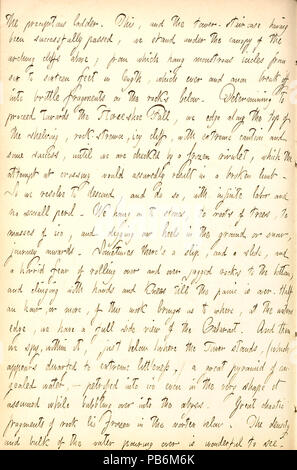 the precipitous ladder. This, and the Tower-staircase having
been successfully passed, we stand under the canopy of the
arching cliffs above; from which hang monstrous icicles from
six to sixteen feet in length, which ever and anon break off
into brittle fragments on the rocks below. Determining to
proceed towards the Horseshoe Fall, we edge along the top of
the shelving, rock-strewn, icy cliff, with extreme caution and
some success, until we are checked by a frozen rivulet, which the
attempt at crossing would assuredly result in a broken limb.
So we resolve to descend, and do so, with infinite labor and
no small peril. We hang on to stones, to roots of trees, to
masses of ice, and, digging our heels in the ground or snow,
journey onwards. Sometimes there's a slip, and a slide, and
a horrid fear of rolling over and over jagged rocks to the bottom,
and clinging with hands and knees till the panic is over. Half
an hour, or more, of this work brings us to where, at the waters
edge, we have a full side view of the Cataract. And then
we spy, within it, just below where the Tower stands, (which
appears dwarfed to extreme littleness,) a great pyramid of con-
gealed water, — petrified into ice even in the very shape it
assumed while bubbling over into the abyss. Great chaotic
fragments of rock lie frozen in the vortex below. The density
and bulk of the water pouring over is wonderful to see.
alamy
Image ID: PB6M6K
www.alamy.com